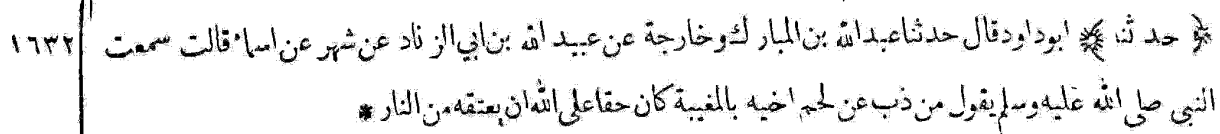 ﴿ حد ثنا ﴾ ابوداودقال حدثناعبدالله بن المبار ك وخارجة عن عبيد الله بن ابي الز ناد عن شهر عن اسماء قالت سمعت ١٦٣٢
النبي صلى الله عليه وسلم يقول من ذب عن لحم اخيه بالمغيبة كان حقا على الله ان يعتقه من النار *